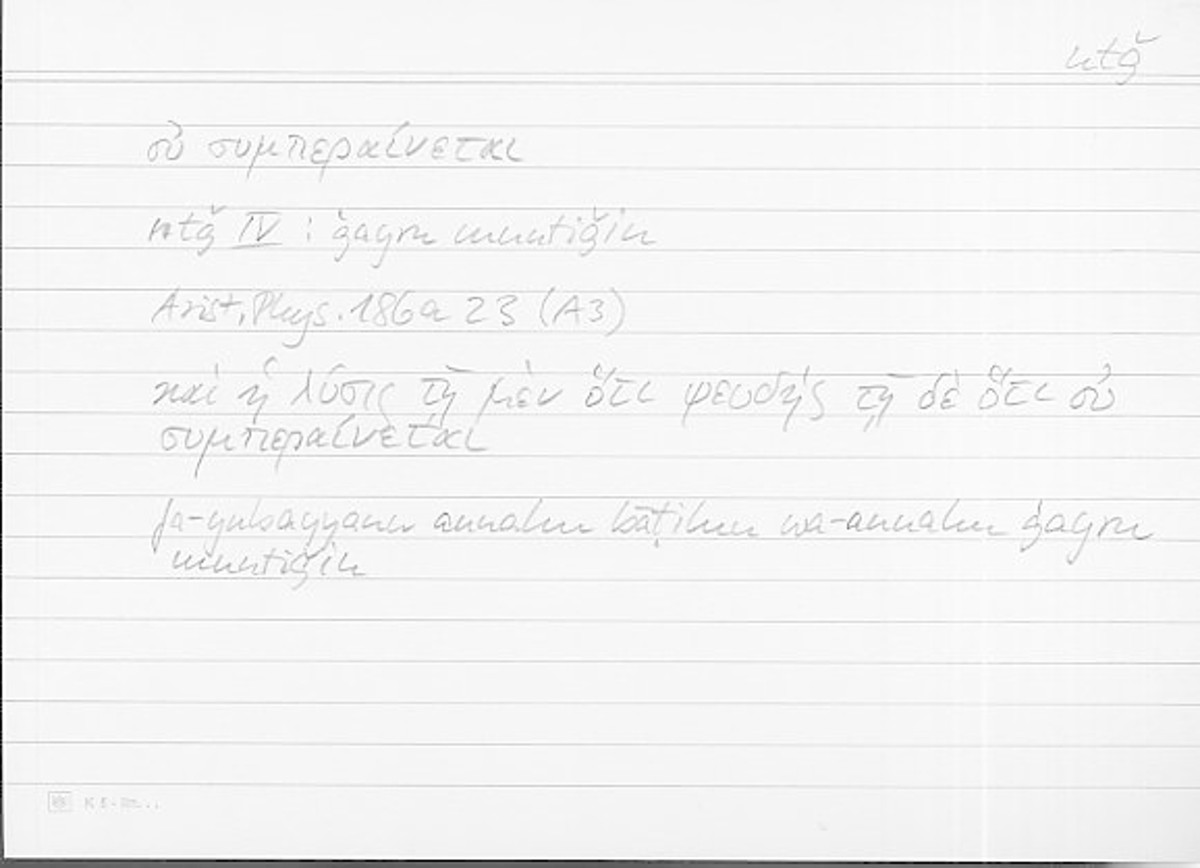 ntǧ
οὐ συμπεραίνεται
ntǧ IV : ġayru muntiǧin
Arist., Phys. 186a 23 (A3)
καὶ ἡ λύσις τῇ μὲν ὅτι ψευδής τῇ δὲ ὅτι οὐ
συμπεραίνεται
fa-yubayyanu annahu bāṭilun wa-annahu ġayru
muntiǧin